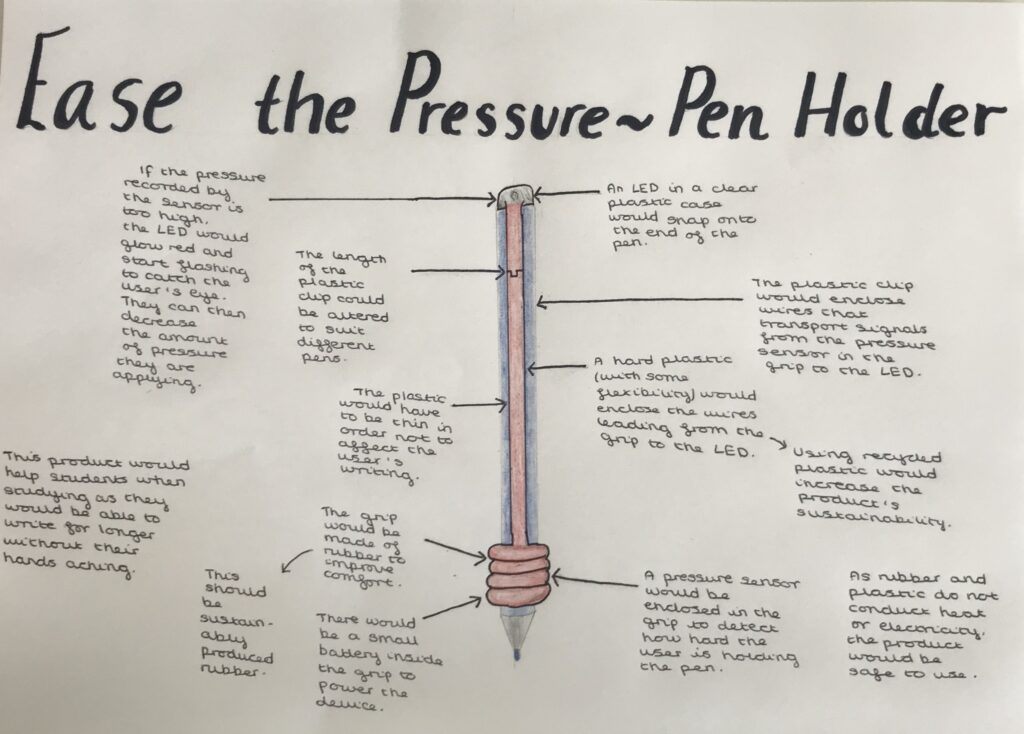 Ease the Pressure ~ Pen Holder
If the pressure
recorded by
the sensor is
too high,
the LED would
glow red and
start flashing
to catch the
user's eye.
They can then
decrease
the amount
of pressure
they are
applying.
An LED in a clear
plastic case
would snap onto
the end of the
pen.
The length
of the
plastic
clip could
be altered
to suit
different
pens.
The plastic clip
would enclose
wires that
transport signals
from the pressure
sensor in the
grip to the LED.
A hard plastic
(with some
flexibility) would
enclose the wires
leading from the
grip to the LED.
The plastic
would have
to be thin in
order not to
affect the
user's
writing.
Using recycled
plastic would
increase the
product's
sustainability.
This product would
help students when
studying as they
would be able to
write for longer
without their
hands aching.
The grip
would be
made of
rubber to
improve
comfort.
This
should
be
sustain-
ably
produced
rubber.
There would
be a small
battery inside
the grip to
power the
device.
A pressure sensor
would be
enclosed in the
grip to detect
how hard the
user is holding
the pen.
As rubber and
plastic do not
conduct heat
or electricity,
the product
would be
safe to use.